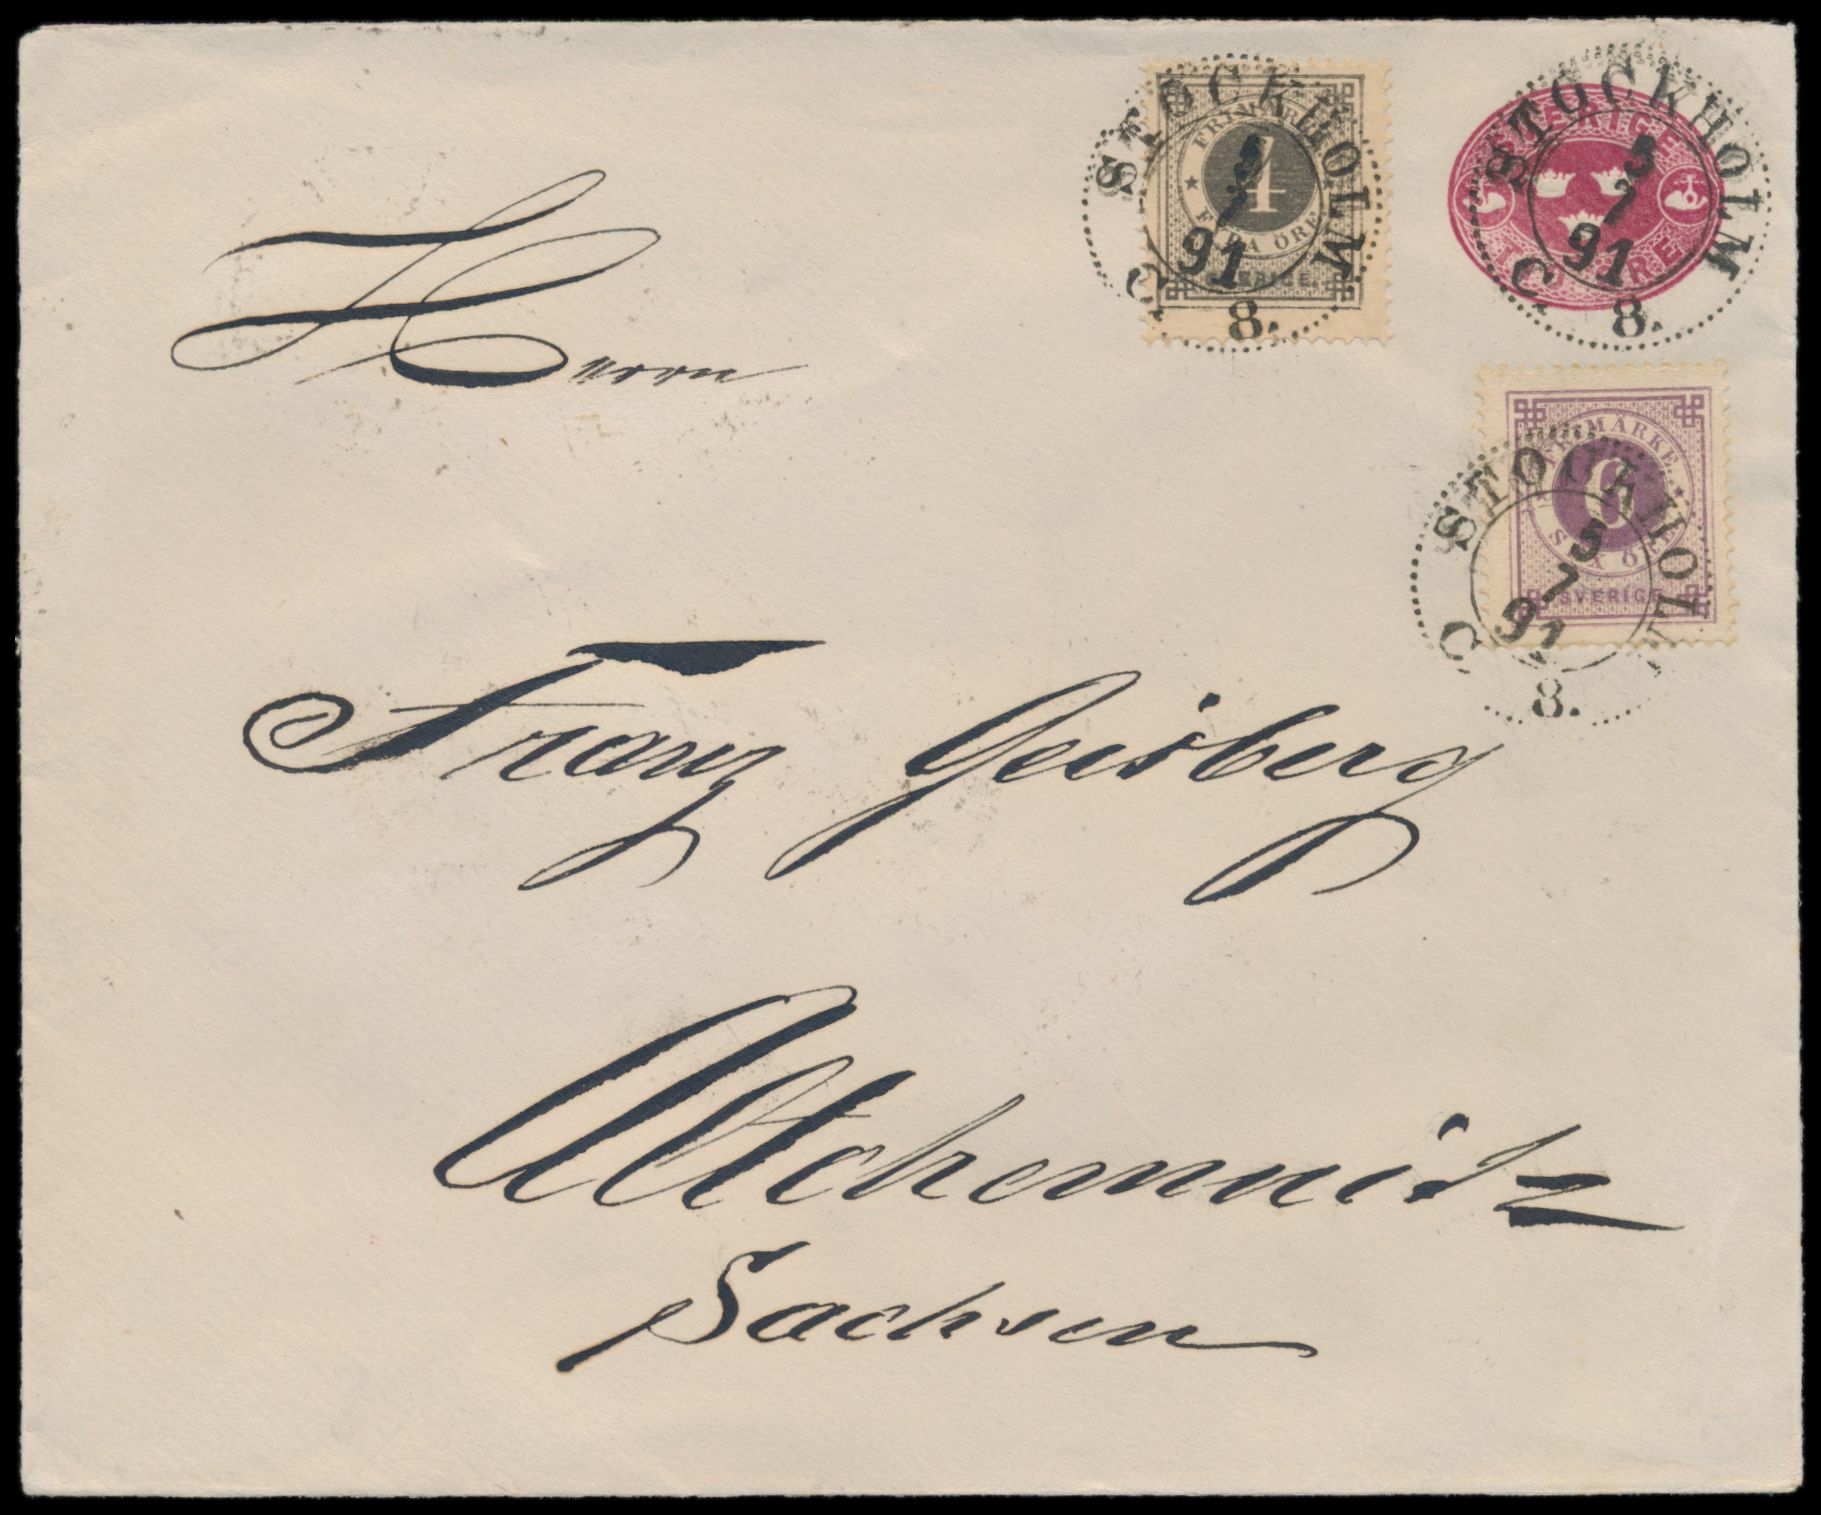 STOCKHOLM
5
7
91
C. 8.
FRIMÄRKE
4
FYRA ÖRE
SVERIGE.
STOCKHOLM
5
7
91
C. 8.
SVERIGE
TIO ÖRE
Herrn
FRIMÄRKE.
6
SEX ÖRE
SVERIGE.
STOCKHOLM
5
7
91
C. 8.
Franz Geisberg
Altchemnitz
Sachsen